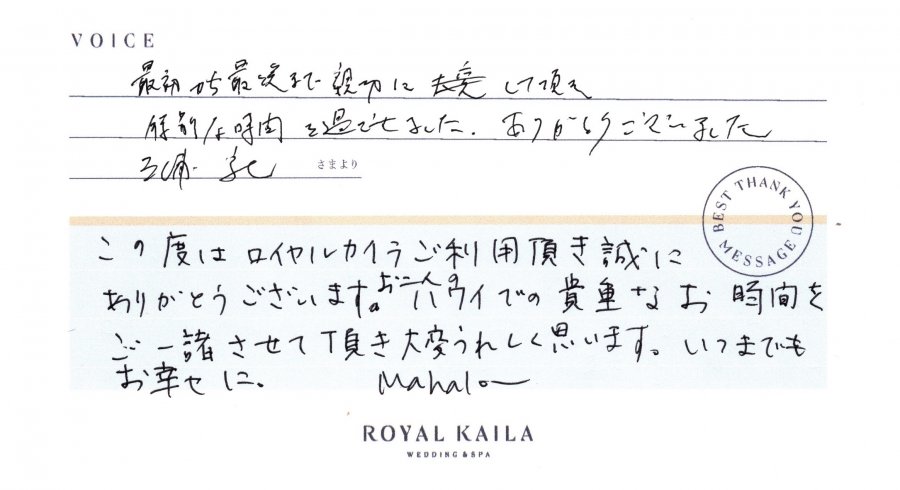 VOICE
最初から最後まで親切に大変して頂き
な時間を過ごせました。ありがとうございました
三浦 さまより
BEST THANK YOU MESSAGE
この度はロイヤルカイラご利用頂き誠に
ありがとうございます。お二人のハワイでの貴重なお時間を
ご一諸させて頂き大変うれしく思います。いつまでも
お幸せに。 Mahalo
ROYAL KAILA
WEDDING & SPA